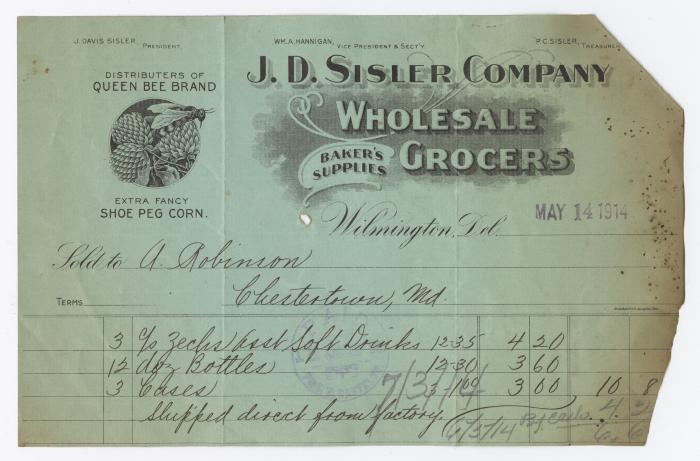 J. DAVIS SISLER, PRESIDENT.
WM. A. HANNIGAN, VICE PRESIDENT & SECT'Y
P. C. SISLER, TREASURER
J. D. SISLER COMPANY
WHOLESALE
GROCERS
BAKER'S
SUPPLIES
DISTRIBUTERS OF
QUEEN BEE BRAND
EXTRA FANCY
SHOE PEG CORN.
Wilmington, Del. MAY 14 1914
Sold to A. Robinson
TERMS Chestertown, Md.
3 c/s Zechs Asst Soft Drinks 12-35 4 20
12 doz Bottles 12-30 3 60
3 Cases 3-1.00 3 00 10 8
Shipped direct from factory.
7/3/14
6/5/14 By Cash. 4 2
6 6